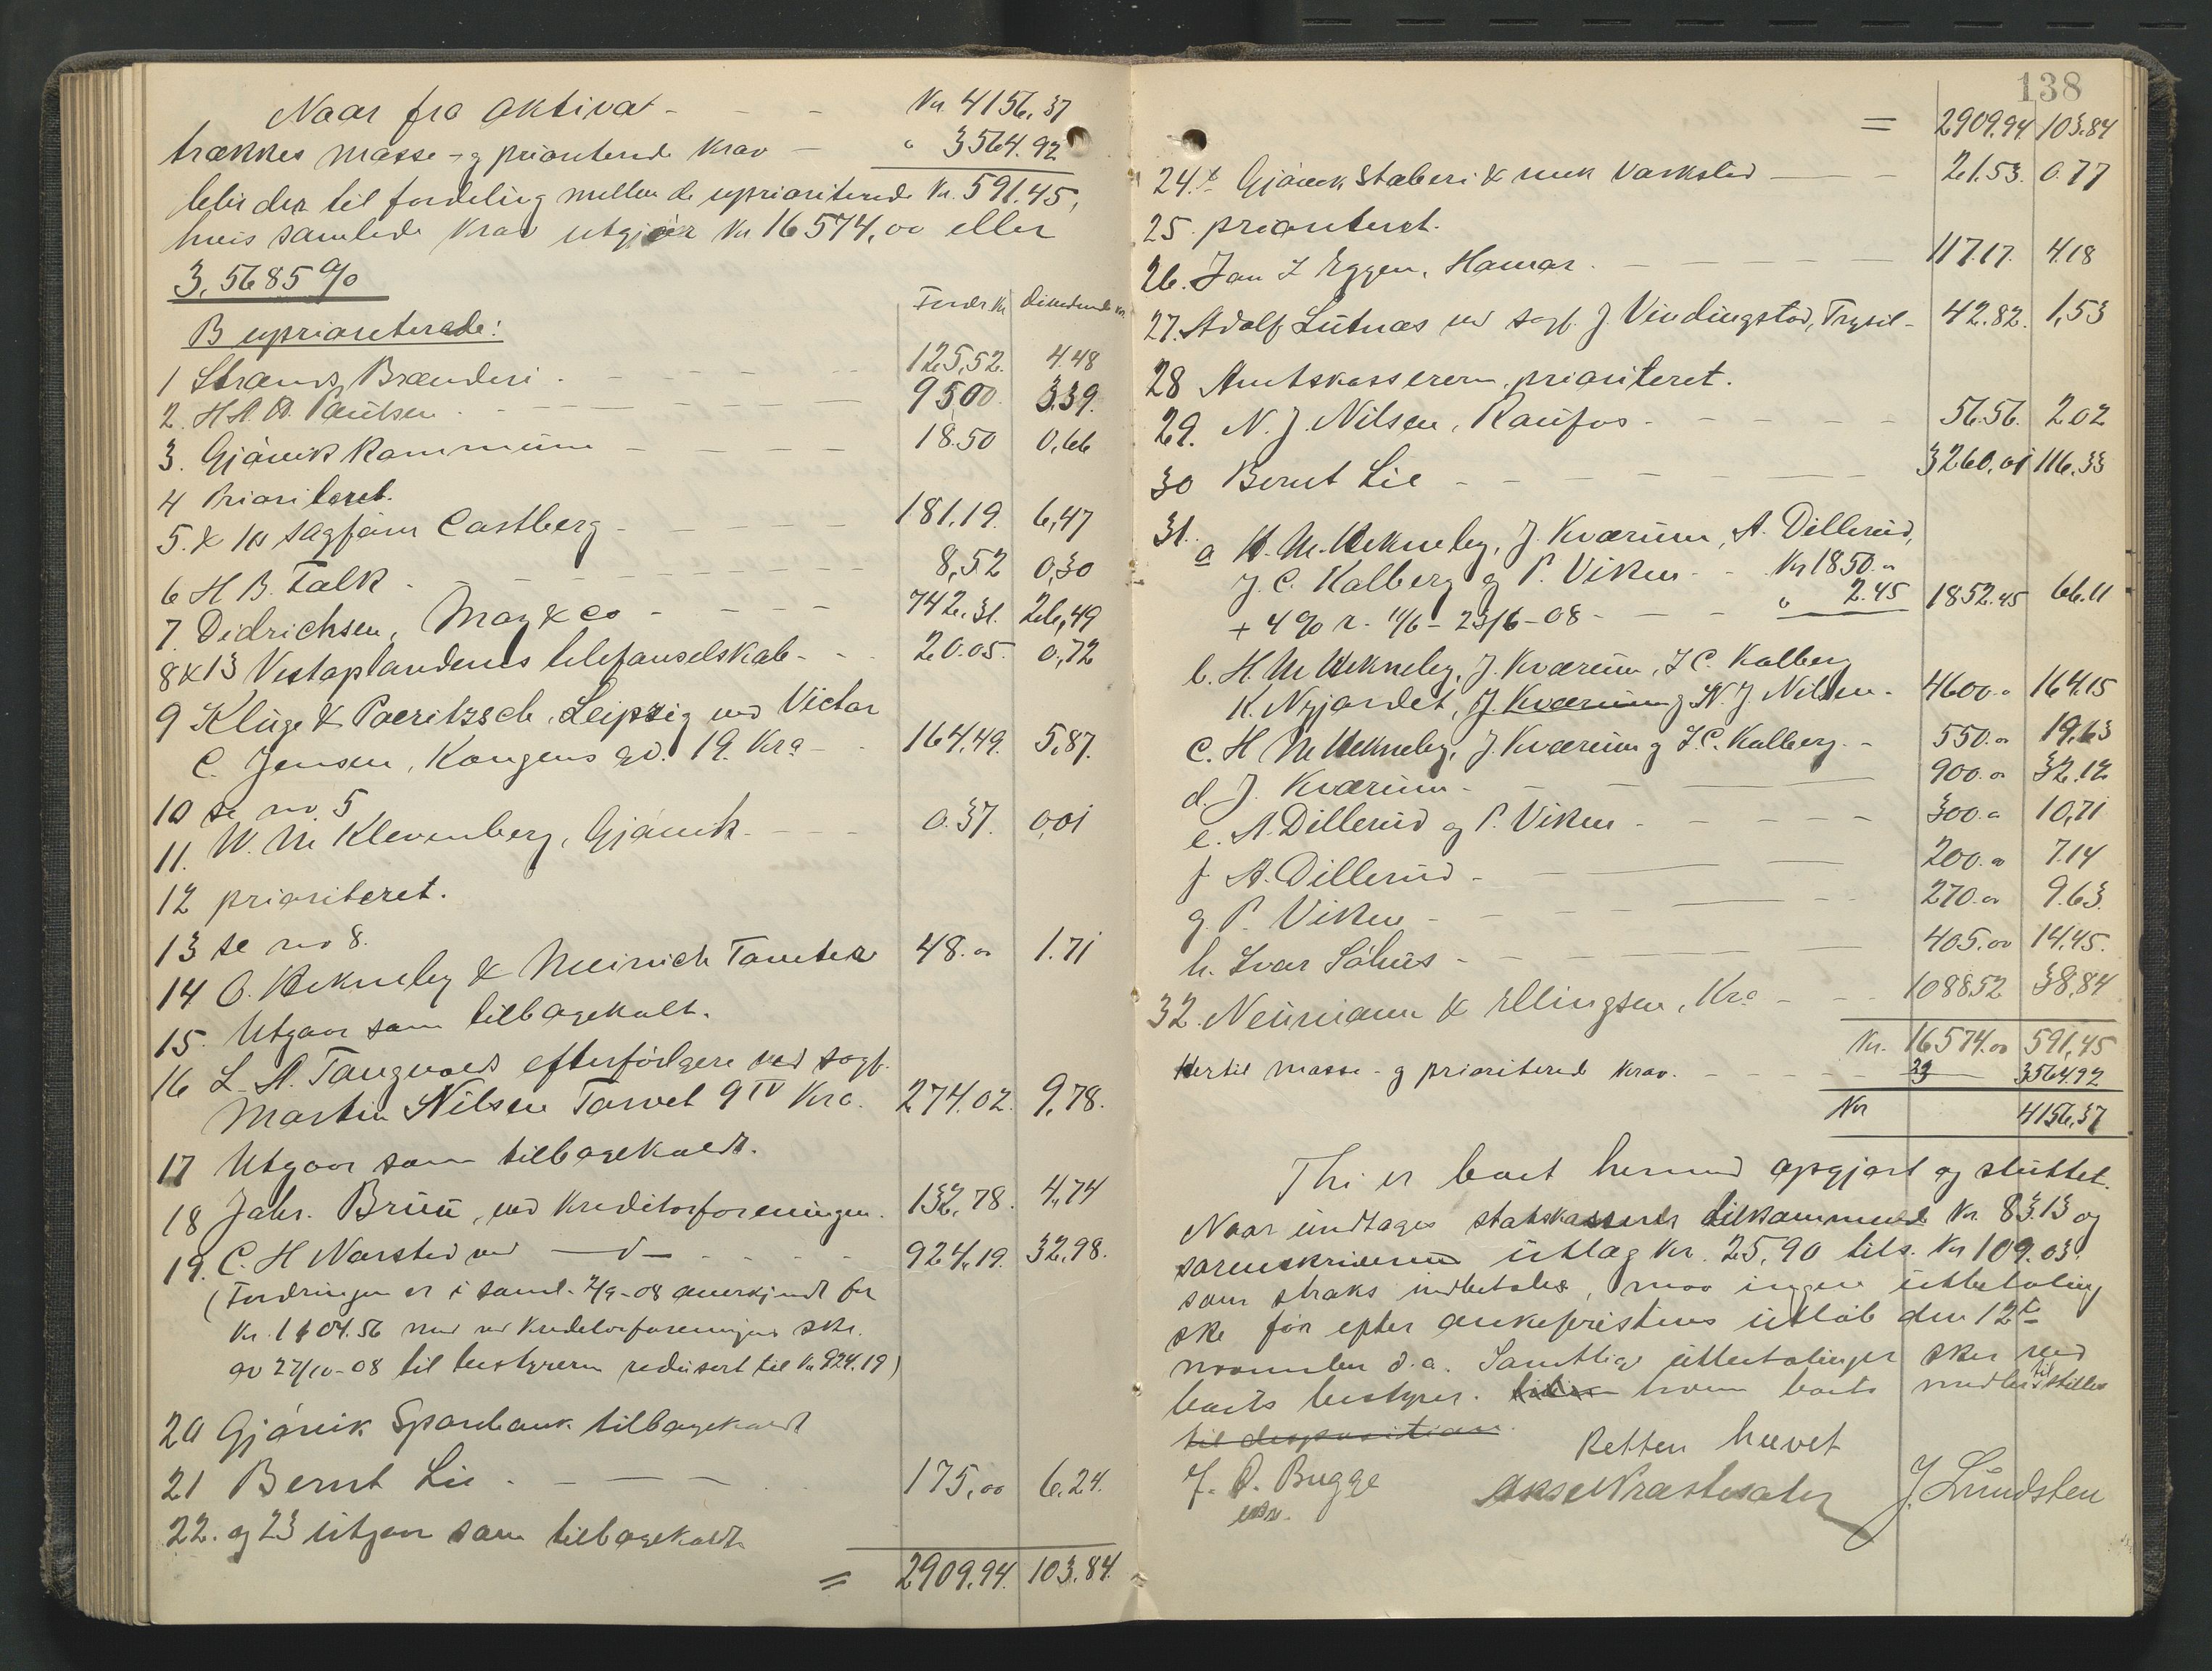 Naar fra aktiva - - - Kr. 4156,37
trækkes masse- og prioriterede krav - " 3564.92
blir der til fordeling mellem de uprioriterede Kr. 591.45,
hvis samlede krav utgjør Kr 16574,00 eller
3,5685 %
Fordr. Kr. Dividende kr.
B uprioriterede:
1 Strands Brænderi - - - 125,52. 4.48
2. H.A.B. Paulsen - - - 95,00 3.39.
3. Gjøvik Kommune - - - 18.50 0,66
4 Prioriteret.
5. & 10 sagfører Castberg - - - 181.19. 6,47
6 H B. Falk - - - 8,52 0,30
7. Didrichsen, May & Co - - - 742.31. 26,49
8 & 13 Vestoplandenes telefonselskab - - 20.05. 0,72
9 Kluge & Poeritzsch, Leipzig ved Victor
C. Jensen, Kongens gd. 19. Kra - - 164,49. 5,87.
10 se no. 5
11. W. M Klevenberg, Gjøvik - - - 0.37. 0,01
12 prioriteret.
13 se no 8.
14 O. Hekneby & Meinich Tomter 48.00 1.71
15. Utgaar som tilbagekalt.
16 L. A. Tangvalds efterfølgere ved sagf.
Martin Nilsen Torvet 9 IV Kra. 274.02. 9,78.
17 Utgaar som tilbagekaldt.
18 Johs. Bruu, ved Kreditorforeningen. 132,78. 4,74
19. C. H Narsted ved —d— - - - 924,19. 32,98.
(Fordringen er i saml. 2/9-08 anerkjendt for
Kr. 1404.56 men ved Kreditorforeningens skr.
av 27/10-08 til bestyreren redusert til Kr 924.19)
20 Gjøvik Sparebank tilbagekaldt
21 Bernt Lie - - - 175,00 6.24.
22. og 23 utgaar som tilbagekaldt
= 2909,94. 103.84.
138
= 2909.94 103.84
24. Gjøvik Støberi & mek Værksted - - - 21.53. 0.77
25. prioriteret.
26. Jan L Eggen, Hamar. - - - 117.17. 4.18
27. Adolf Lutnæs ved sagf. J. Vindingstad, Trysil - 42.82. 1,53
28 Amtskassereren, prioriteret.
29. N. J. Nilsen, Raufos - - - 56.56. 2 02
30 Bernt Lie - - - 3260,01 116,33
31. a H. M. Hekneby, J. Kværum, A. Dillerud,
J. C. Kalberg og P. Viken - - Kr 1850.00
+ 4 % r. 11/6 - 23/6-08 - - - " 2.45 1852.45 66.11
b. H. M Hekneby, J. Kværum, J C. Kalberg
K. Nyjordet, J. Kværum og N. J. Nilsen - 4600.00 164.15
c. H M Hekneby, J. Kværum og J. C. Kalberg. - 550.00 19,63
d. J. Kværum - - - 900.00 32,12
e. A. Dillerud og P. Viken - - - 300.00 10,71
f A. Dillerud - - - 200.00 7.14
g. P. Viken - - - 270.00 9.63.
h. Ivar Sølius - - - 405.00 14,45.
32. Neumann & Ellingsen, Kra - - - 1088 52 38,84
Kr. 16574.00 591,45
Hertil masse- og prioriterede krav. - - - 3564.92
Kr 4156,37
Thi er boet hermed opgjort og sluttet.
Naar undtages statskassens tilkommende Kr. 83.13 og
sorenskriverens utlæg Kr. 25,90 tils. Kr 109.03.
som straks indbetales, maa ingen utbetaling
ske før efter ankefristens utløb den 12te
november d.a. Samtlige utbetalinger sker ved
boets bestyrer. hvem boets midler tilstilles
til disposition.
Retten hævet
J. O. Bugge
J. Lundsten